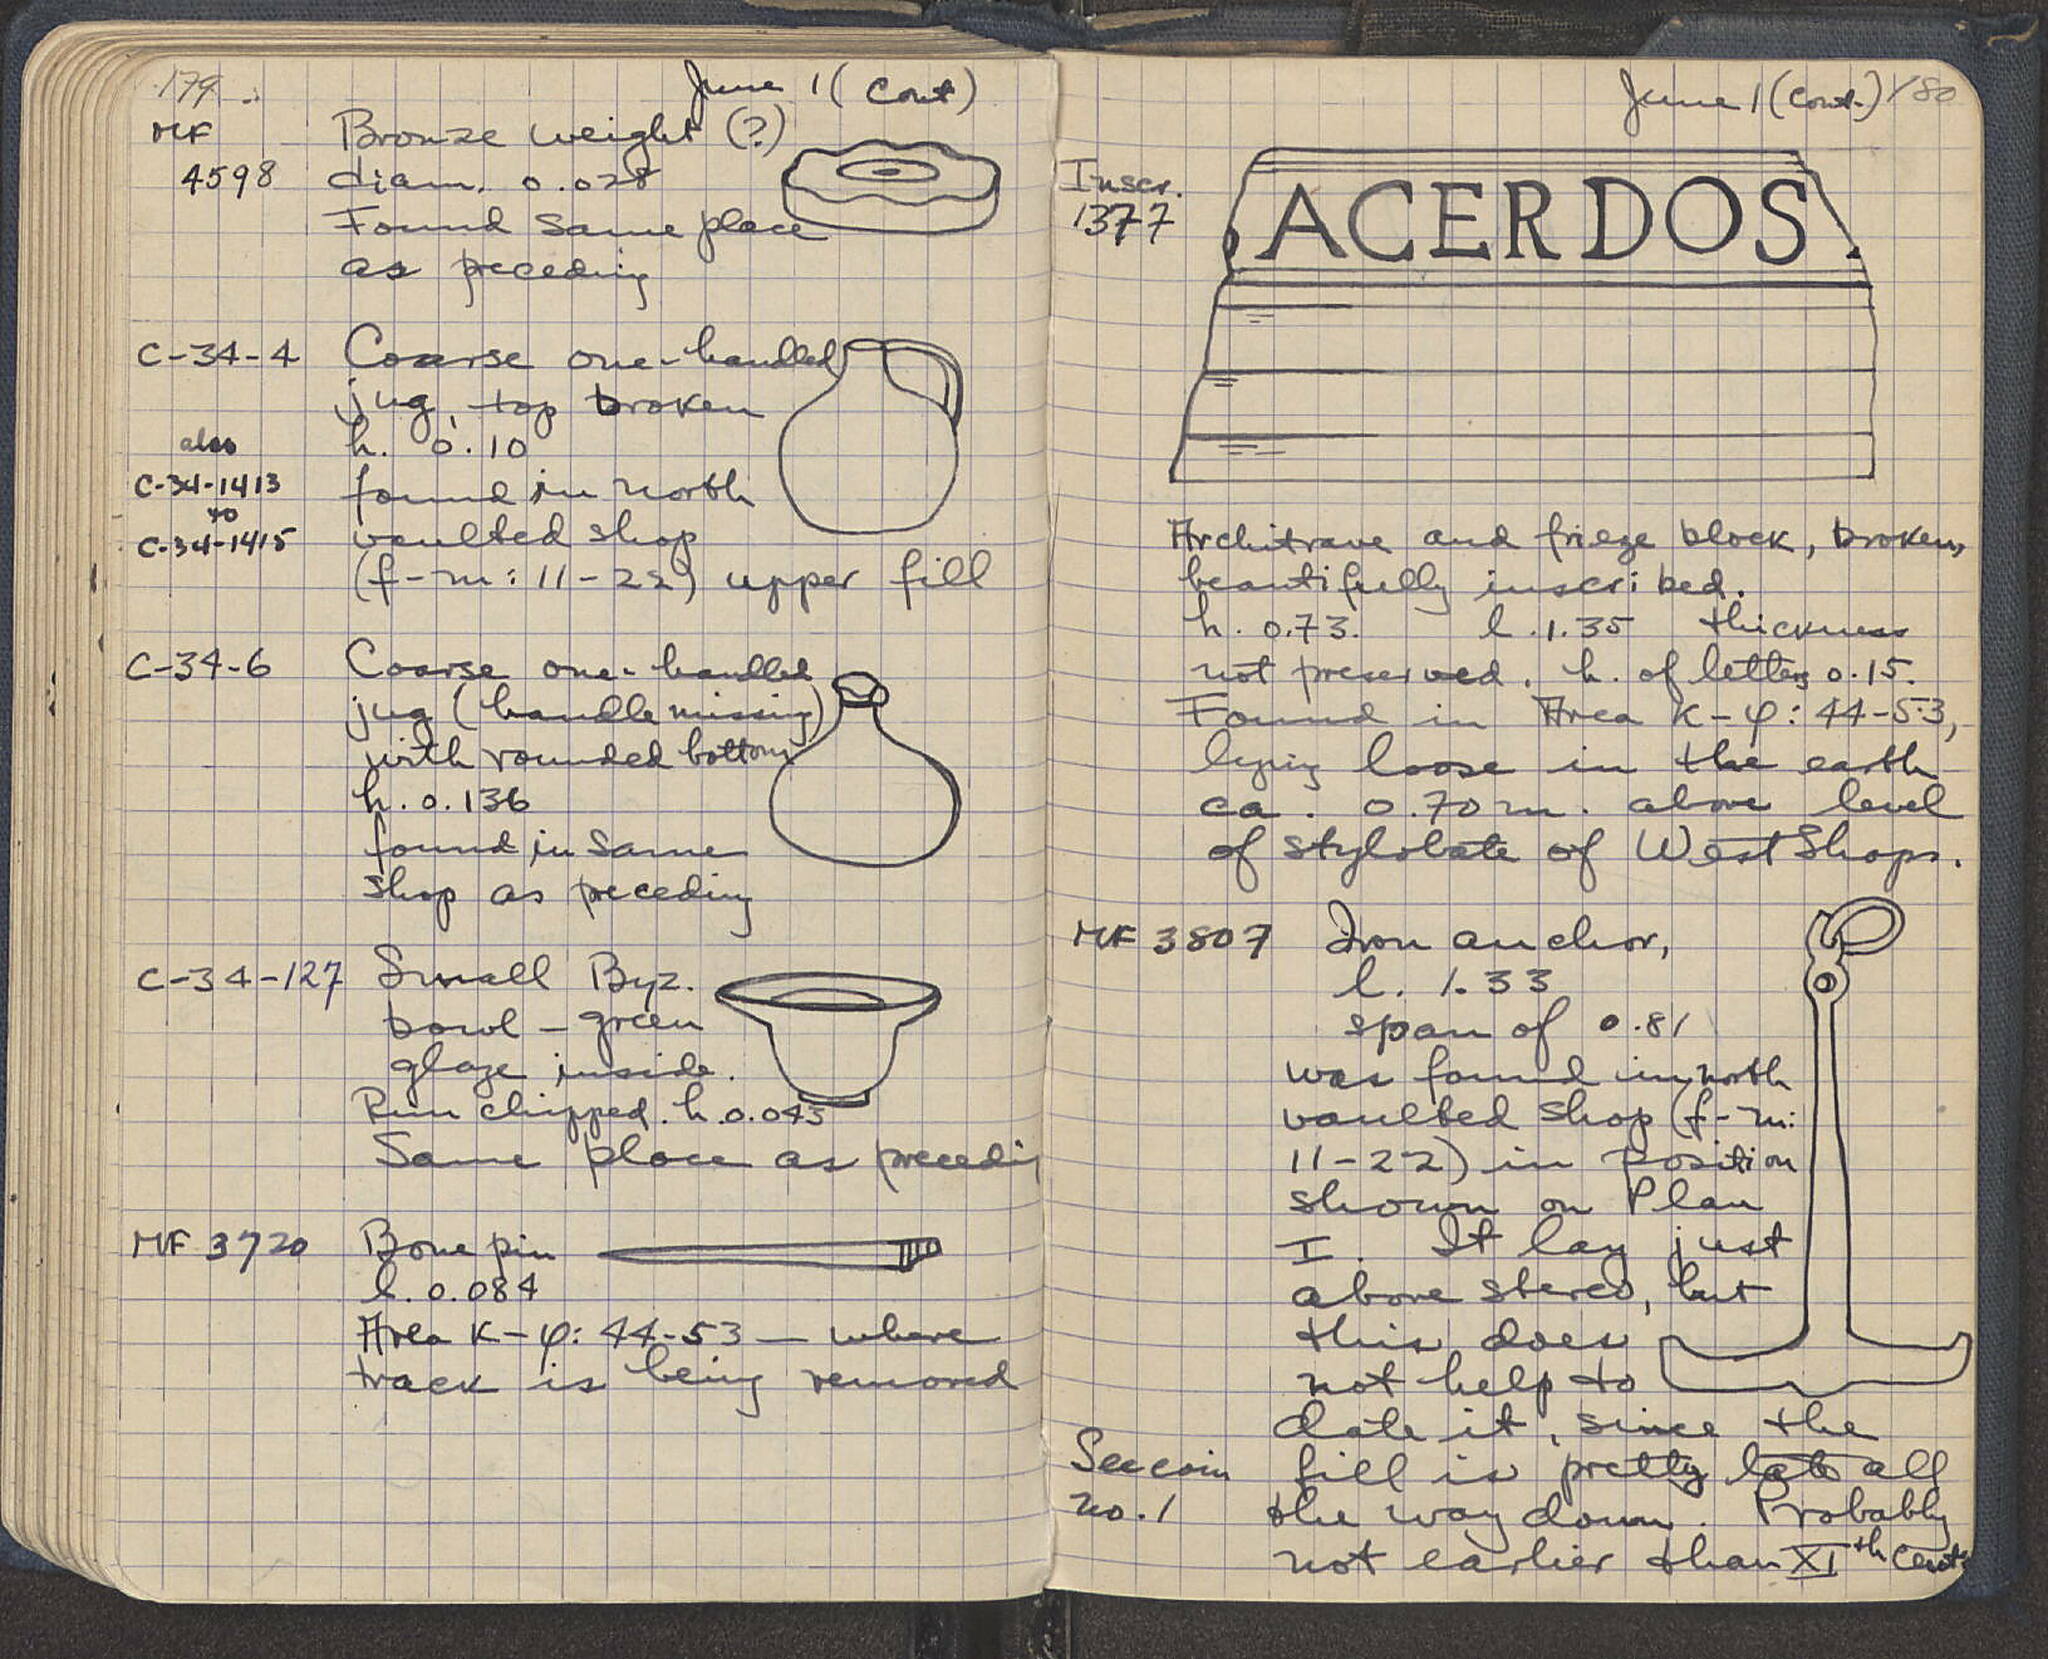 179
June 1 (cont)
MF
4598
Bronze weight (?)
diam. 0.028
Found same place
as preceding
C-34-4
also
C-34-1413
to
C-34-1415
Coarse one-handled
jug, top broken
h. 0.10
found in north
vaulted shop
(f-m: 11-22) upper fill
C-34-6
Coarse one-handled
jug (handle missing)
with rounded bottom
h. 0.136
found in same
shop as preceding
C-34-127
Small Byz.
bowl - green
glaze inside.
Rim chipped. h. 0.043
Same place as preceding
MF 3720
Bone pin
l. 0.084
Area K-φ: 44-53 — where
track is being removed
June 1 (cont.) 180
Inscr.
1377
ACERDOS
Architrave and frieze block, broken,
beautifully inscribed.
h. 0.73. l. 1.35 thickness
not preserved. h. of letters 0.15.
Found in Area K-φ: 44-53,
lying loose in the earth
ca. 0.70 m. above level
of stylobate of West Shops.
MF 3807
Iron anchor,
l. 1.33
span of 0.81
was found in north
vaulted shop (f-m:
11-22) in position
shown on Plan
I. It lay just
above stereo, but
this does
not help to
date it, since the
See coin
no. 1
fill is pretty late all
the way down. Probably
not earlier than XIth cent.